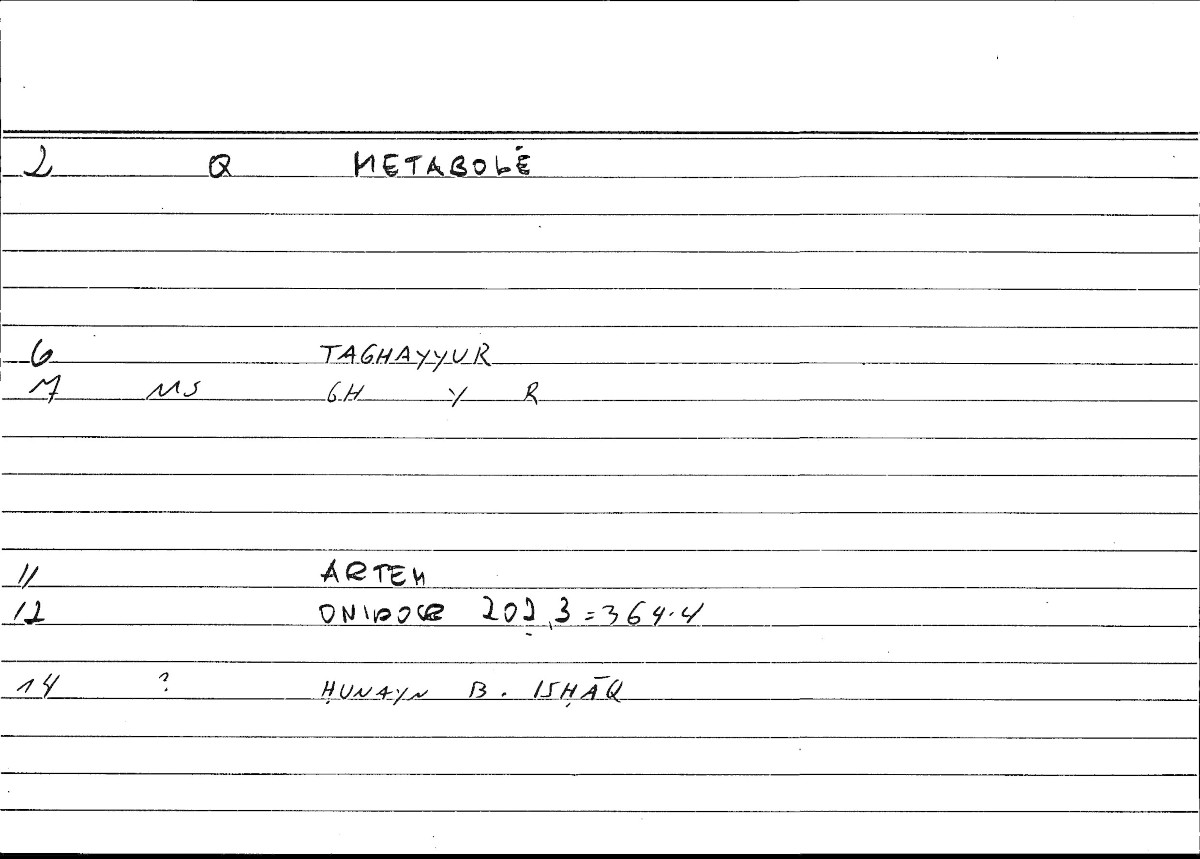 2 Q METABOLĖ
6 TAGHAYYUR
7 MS GH Y R
11 ARTEM
12 ONIROCR 202,3 = 364.4
14 ? ḤUNAYN B. ISḤĀQ